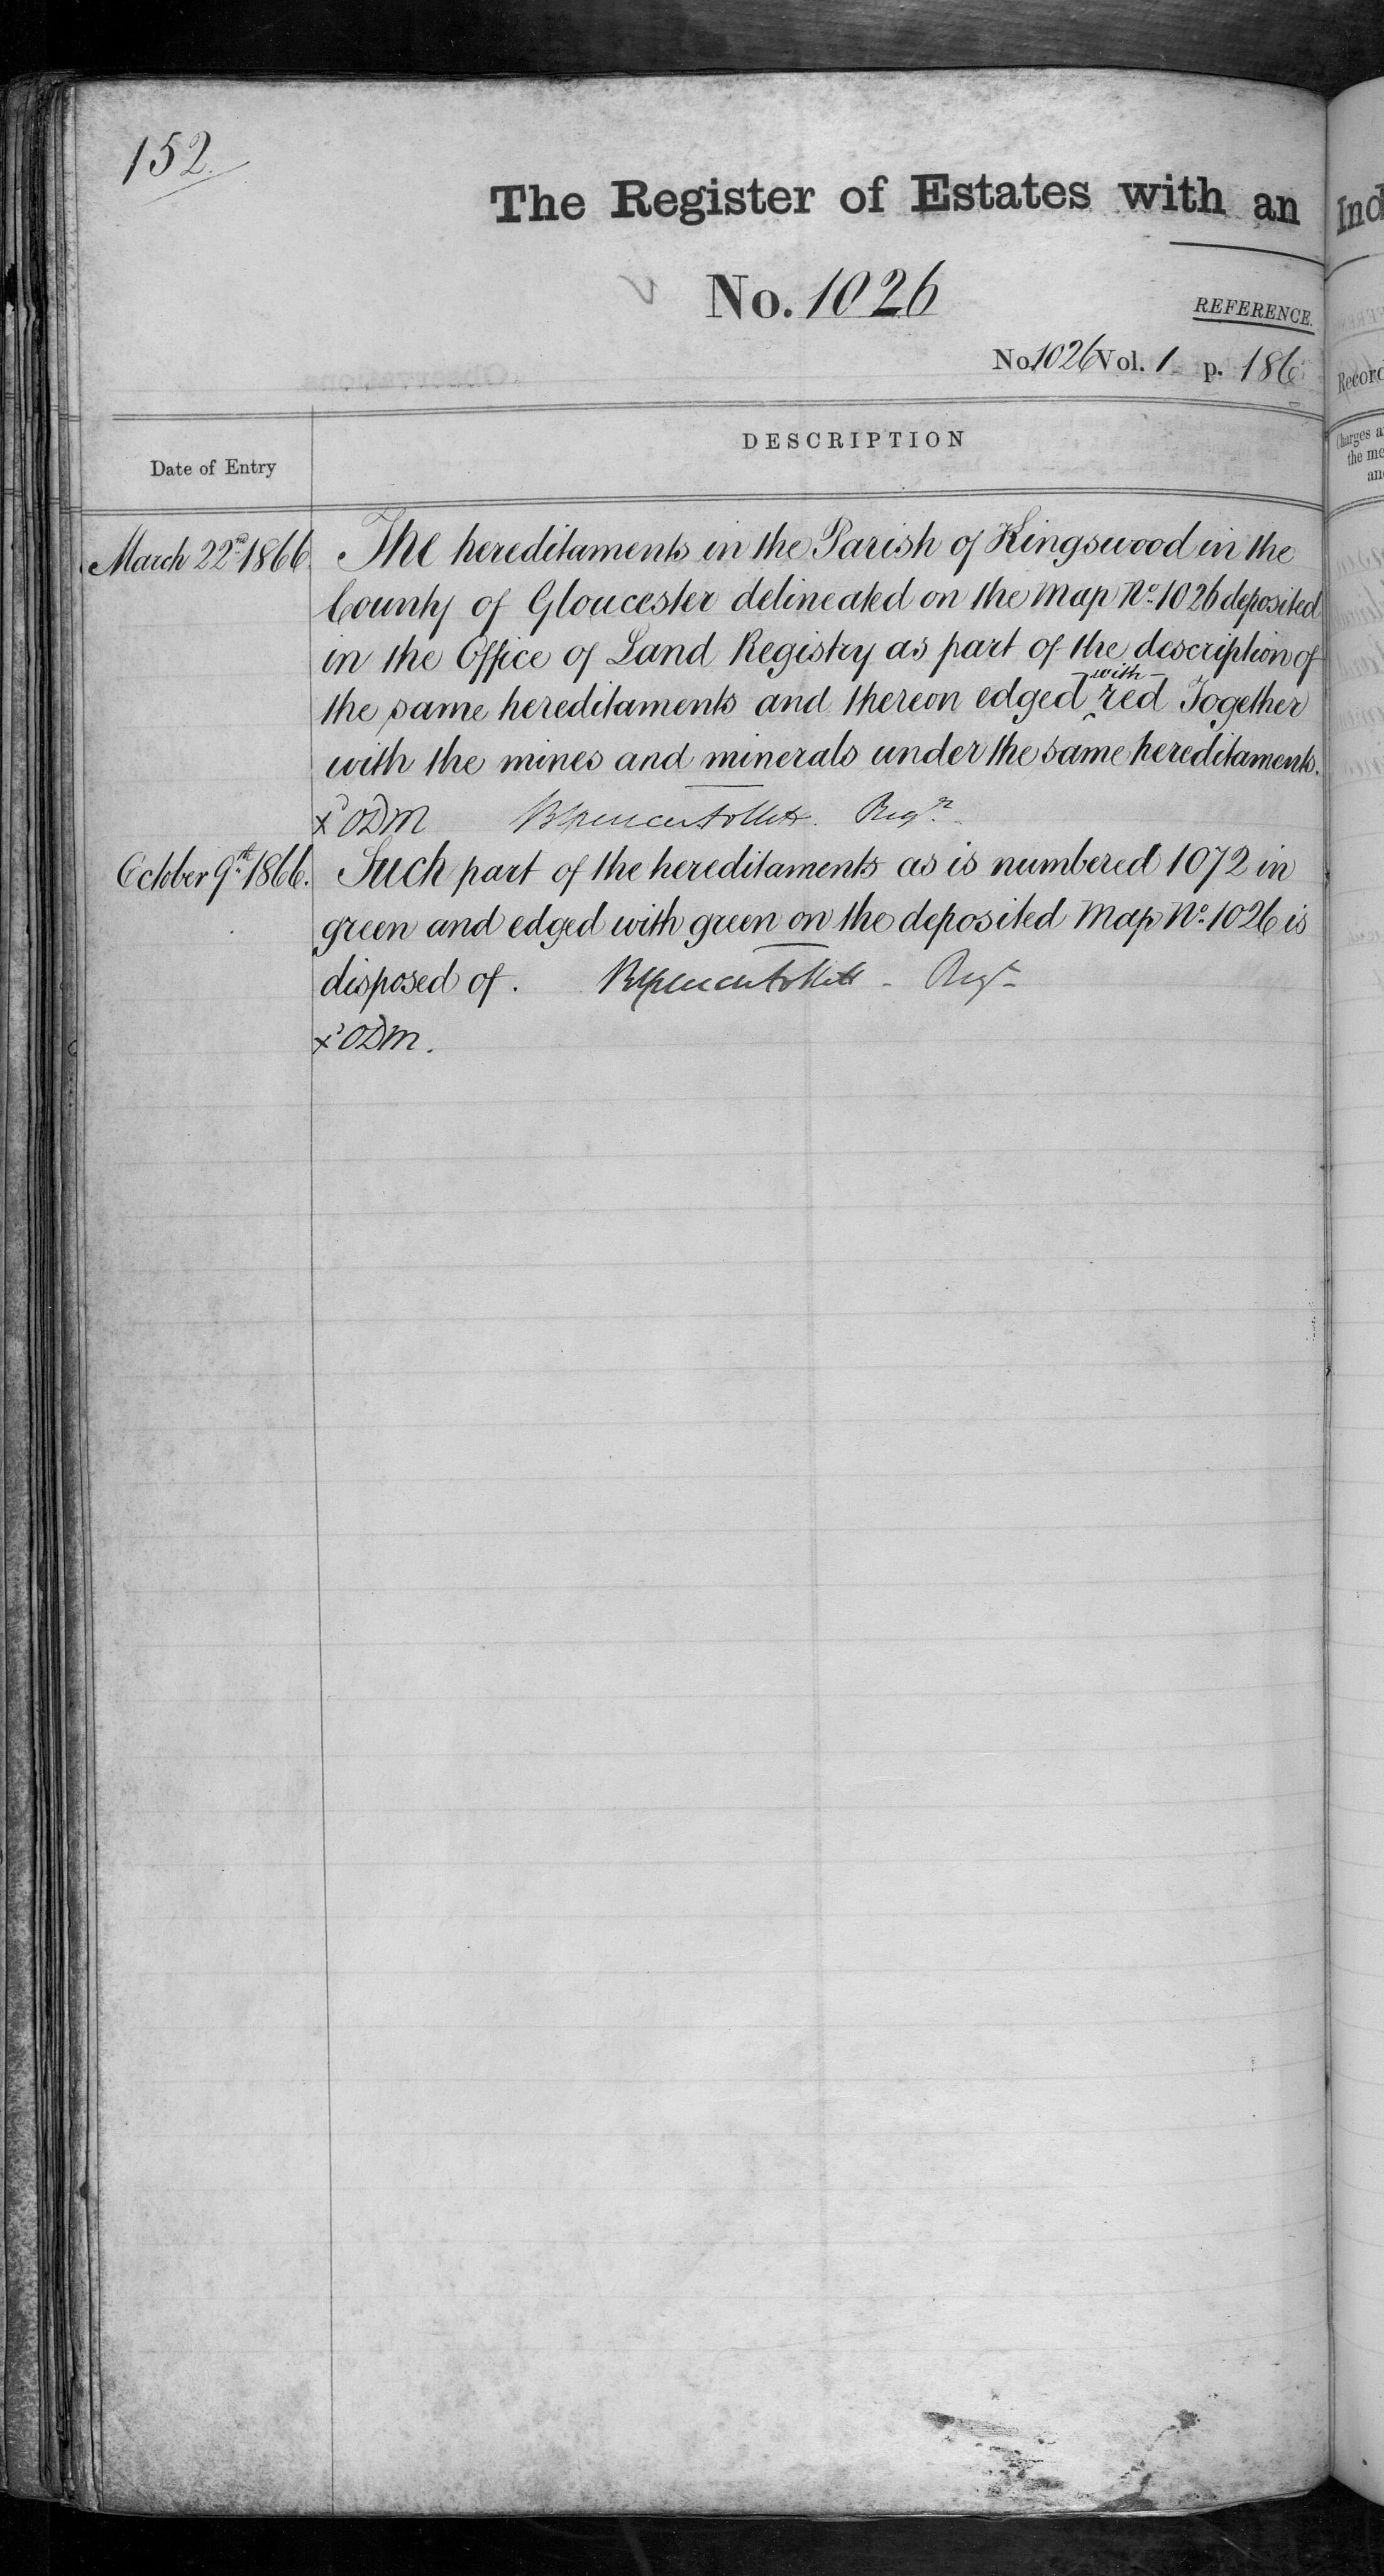 152.
The Register of Estates with an Ind
No. 1026
REFERENCE.
No 1026 Vol. 1 p. 186
Record
DESCRIPTION
Date of Entry
Charges a
the me
an
March 22nd 1866. The hereditaments in the Parish of Kingswood in the
County of Gloucester delineated on the Map No. 1026 deposited
in the Office of Land Registry as part of the description of
the same hereditaments and thereon edged with red Together
with the mines and minerals under the same hereditaments.
x ODM Regr.
October 9th 1866. Such part of the hereditaments as is numbered 1072 in
green and edged with green on the deposited Map No. 1026 is
disposed of. Regr
x ODM.